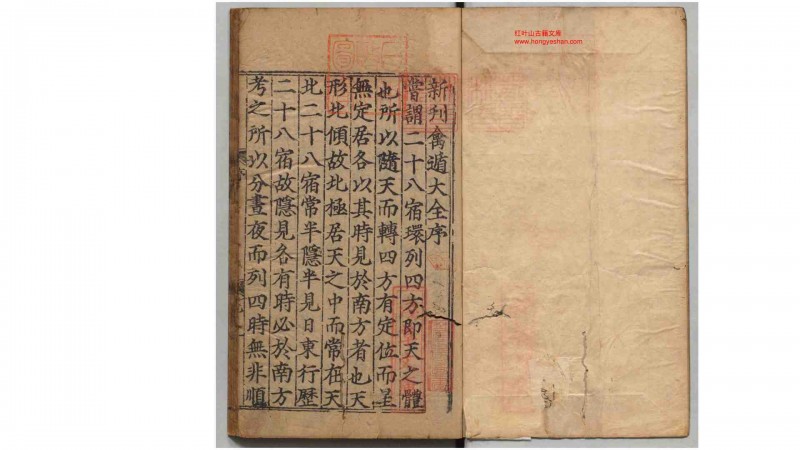 新刊禽遁大全序
嘗謂二十八宿環列四方即天之體
也所以隨天而轉四方有定位而星
無定居各以其時見於南方者也天
形北傾故北極居天之中而常在天
北二十八宿常半隱半見日東行歷
二十八宿故隱見各有時必於南方
考之所以分晝夜而列四時無非順
红叶山古籍文库
www.hongyeshan.com